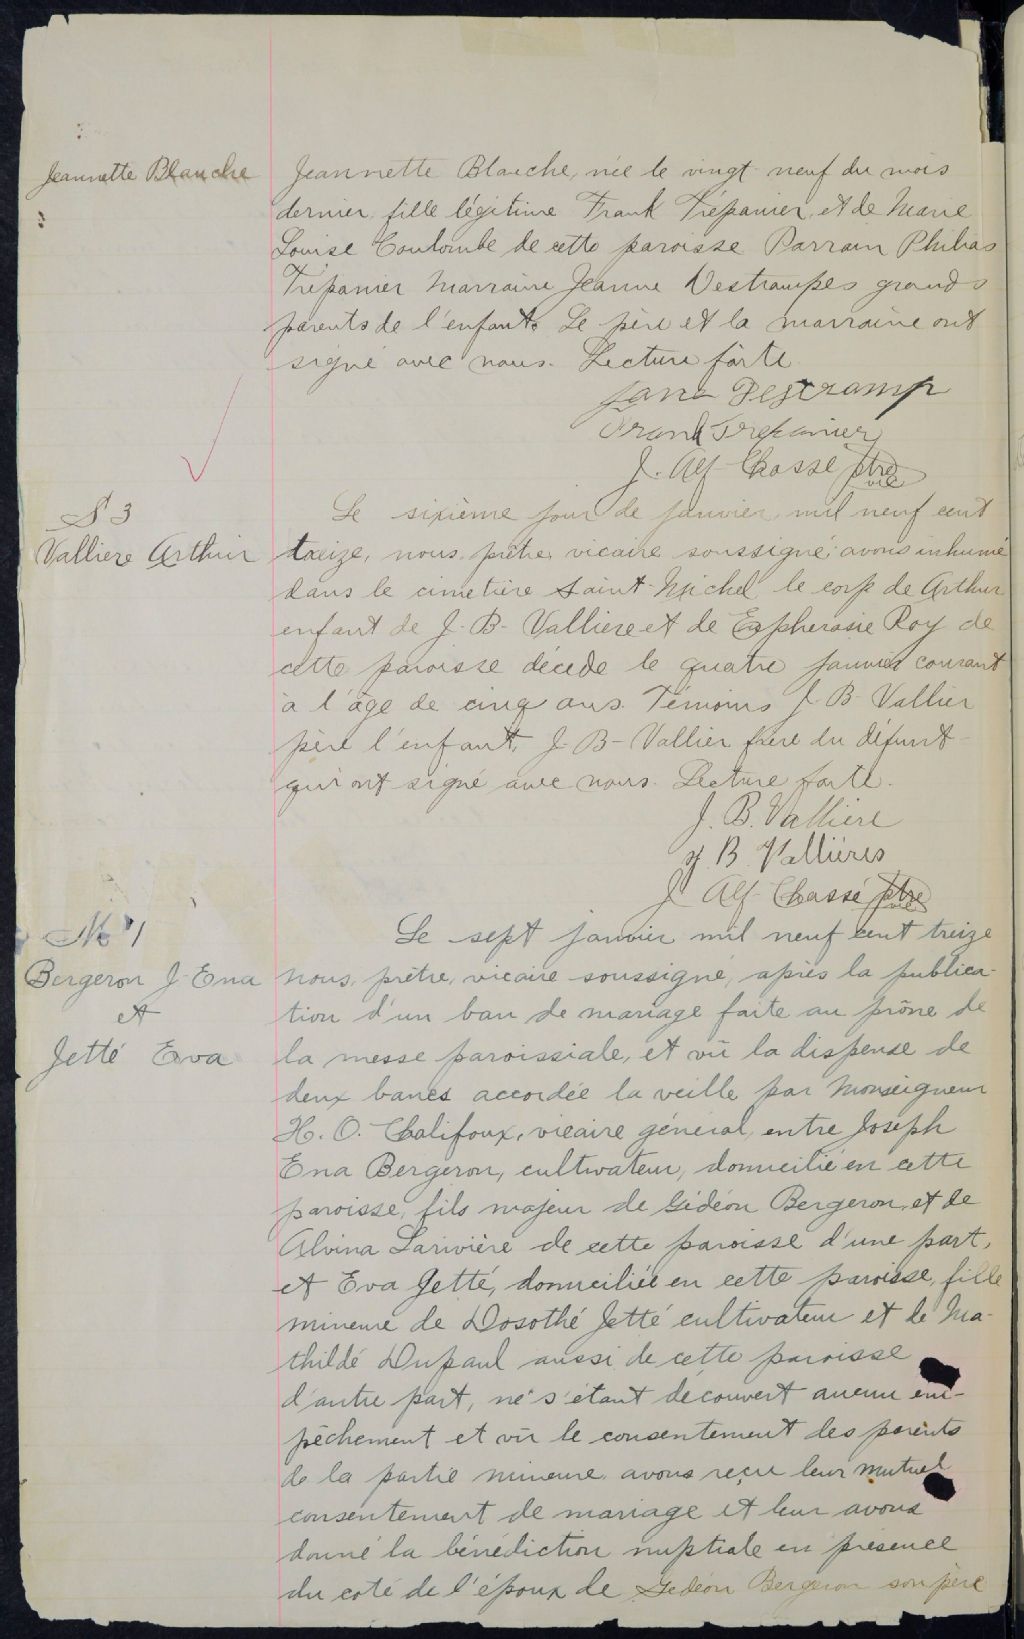 Jeannette Blanche
Jeannette Blanche, née le vingt neuf du mois
dernier, fille légitime Frank Trépanier, et de Marie
Louise Coulombe de cette paroisse Parrain Philias
Trépanier Marraine Jeanne Destrampes grands
parents de l'enfant. Le père et la marraine ont
signé avec nous. Lecture faite
Jane Destramp
Frank Trepanier
J. Alf Chassé ptre
vic
S 3
Valliere Arthur
Le sixième jour de janvier mil neuf cent
treize, nous, prêtre vicaire soussigné avons inhumé
dans le cimetière Saint-Michel le corp de Arthur
enfant de J-B-Valliere et de Eupherosie Roy de
cette paroisse décede le quatre janvier courant
à l'âge de cinq ans. Témoins J-B-Vallier
père l'enfant, J-B-Vallier frère du défunt-
qui ont signé avec nous. Lecture faite.
J. B. Vallière
J B Vallières
J Alf Chassé ptre
vic
M 1
Bergeron J-Ena
et
Jetté Eva
Le sept janvier mil neuf cent treize
nous, prêtre, vicaire soussigné, après la publica-
tion d'un ban de mariage faite au prône de
la messe paroissiale, et vû la dispense de
deux bancs accordée la veille par Monseigneur
H. O. Chalifoux, vicaire général, entre Joseph
Ena Bergeron, cultivateur, domicilié en cette
paroisse, fils majeur de Gédéon Bergeron, et de
Alvina Larivière de cette paroisse d'une part,
et Eva Jetté, domiciliée en cette paroisse, fille
mineure de Dosothé Jetté cultivateur et de Ma-
thildé Dupaul aussi de cette paroisse
d'autre part, ne s'étant découvert aucun em-
pêchement et vû le consentement des parents
de la partie mineure avons reçu leur mutuel
consentement de mariage et leur avons
donné la bénédiction nuptiale en présence
du coté de l'époux de Gedéon Bergeron son père